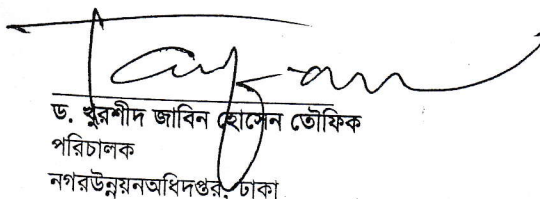 ড. খুরশীদ জাবিন হোসেন তৌফিক
পরিচালক
নগরউন্নয়নঅধিদপ্তর, ঢাকা